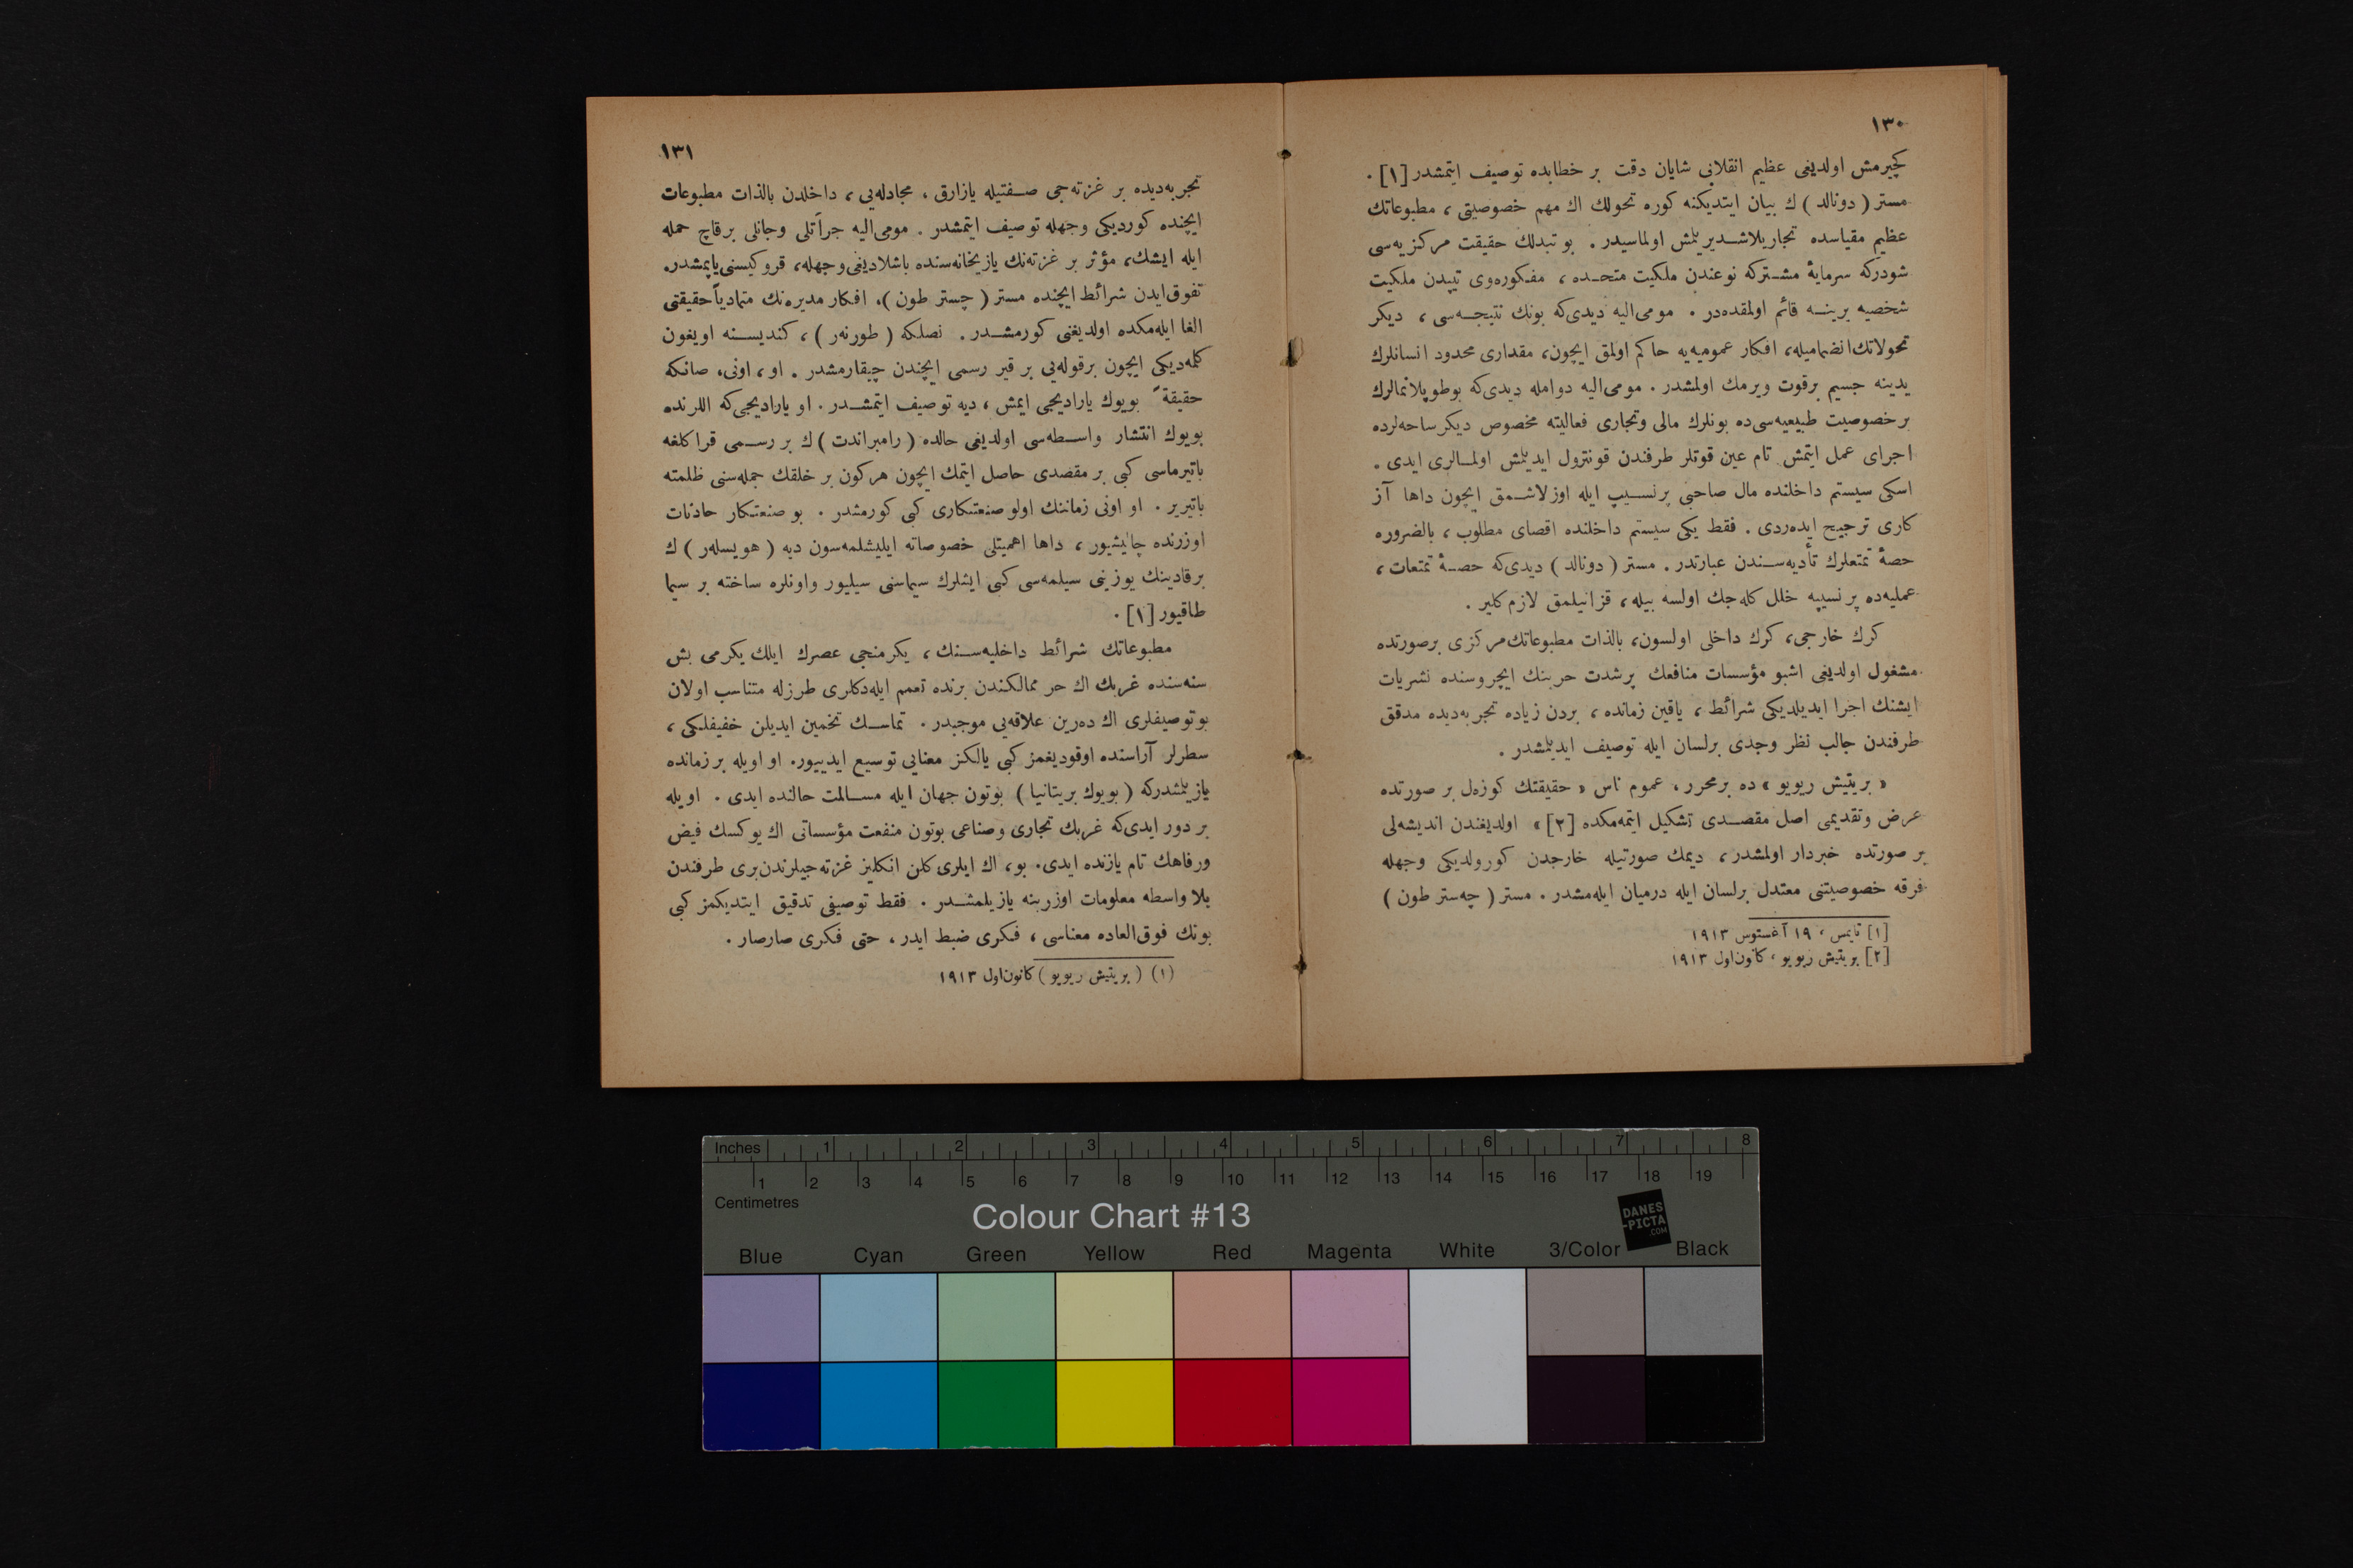 ١٣٠
كچيرمش اولديغى عظيم انقلابى شايان دقت بر خطابده توصيف ايتمشدر [١] .
مستر ( دونالد ) ك بيان ايتديكنه كوره تحولك اك مهم خصوصيتى ، مطبوعاتك
عظيم مقياسده تجاريلاشديريلمش اولماسيدر . بو تبدلك حقيقت مركزيه‌سى
شودركه سرمايۀ مشتركه نوعندن ملكيت متحده ، مفكوره‌وى تيپدن ملكيت
شخصيه يرينه قائم اولمقده‌در . مومى‌اليه ديدى‌كه بونك نتيجه‌سى ، ديكر
تحولاتك انضماميله، افكار عموميه‌يه حاكم اولمق ايچون، مقدارى محدود انسانلرك
يدينه جسيم برقوت ويرمك اولمشدر . مومى‌اليه دوامله ديدى‌كه بوطوپلانمالرك
برخصوصيت طبيعيه‌سى‌ده بونلرك مالى وتجارى فعاليته مخصوص ديكر ساحه‌لرده
اجراى عمل ايتمش تام عين قوتلر طرفندن قونترول ايديلمش اولمالرى ايدى .
اسكى سيستم داخلنده مال صاحبى پرنسيپ ايله اوزلاشمق ايچون داها آز
كارى ترجيح ايده‌ردى . فقط يكى سيستم داخلنده اقصاى مطلوب ، بالضروره
حصۀ تمتعلرك تأديه‌سندن عبارتدر . مستر ( دونالد ) ديدى‌كه حصۀ تمتعات ،
عمليه‌ده پرنسيپه خلل كله‌جك اولسه بيله ، قزانيلمق لازم كلير .
كرك خارجى، كرك داخلى اولسون، بالذات مطبوعاتك مركزى برصورتده
مشغول اولديغى اشبو مؤسسات منافعك پرشدت حربنك ايچروسنده نشريات
ايشنك اجرا ايديلديكى شرائط ، ياقين زمانده ، بردن زياده تجربه‌ديده مدقق
طرفندن جالب نظر وجدى برلسان ايله توصيف ايديلمشدر .
« بريتيش ريويو » ده برمحرر ، عموم ناس « حقيقتك كوزه‌ل بر صورتده
عرض وتقديمى اصل مقصدى تشكيل ايتمه‌مكده [٢] » اولديغندن انديشه‌لى
بر صورتده خبردار اولمشدر ، ديمك صورتيله خارجدن كورولديكى وجهله
فرقه خصوصيتنى معتدل برلسان ايله درميان ايله‌مشدر . مستر ( چه‌ستر طون )
[١] تايمس ، ١٩ آغستوس ١٩١٣
[٢] بريتيش ريويو ، كانون‌اول ١٩١٣
١٣١
تجربه‌ديده بر غزته‌جى صفتيله يازارق ، مجادله‌يى ، داخلدن بالذات مطبوعات
ايچنده كورديكى وجهله توصيف ايتمشدر . مومى‌اليه جرأتلى وجانلى برقاچ حمله
ايله ايشك، مؤثر بر غزته‌نك يازيخانه‌سنده باشلاديغى وجهله، قروكيسنى ياپمشدر.
تفوق‌ايدن شرائط ايچنده مستر ( چستر طون )، افكار مديره‌نك متمادياً حقيقتى
الغا ايله‌مكده اولديغنى كورمشدر . نصلكه ( طورنه‌ر ) ، كنديسنه اويغون
كلمه‌ديكى ايچون برقوله‌يى بر قير رسمى ايچندن چيقارمشدر . او ، اونى، صانكه
حقيقةً بويوك يارا‌ديجى ايمش ، ديه توصيف ايتمشدر . او يارا‌ديجى‌كه اللرنده
بويوك انتشار واسطه‌سى اولديغى حالده ( رامبراندت ) ك بر رسمى قراكلغه
باتيرماسى كبى بر مقصدى حاصل ايتمك ايچون هركون بر خلقك جمله‌سنى ظلمته
باتيرير . او اونى زماننك اولو صنعتكارى كبى كورمشدر . بو صنعتكار حادثات
اوزرنده چاليشيور ، داها اهميتلى خصوصاته ايليشلمه‌سون ديه ( هويسله‌ر ) ك
برقادينك يوزينى سيلمه‌سى كبى ايشلرك سيماسنى سيليور واونلره ساخته بر سيما
طاقيور [١] .
مطبوعاتك شرائط داخليه‌سنك ، يكرمنجى عصرك ايلك يكرمى بش
سنه‌سنده غربك اك حر ممالكندن برنده تعمم ايله‌دكلرى طرزله متناسب اولان
بوتوصيفلرى اك ده‌رين علاقه‌يى موجبدر . تماسك تخمين ايديلن خفيفلكى ،
سطرلر آراسنده اوقوديغمز كبى يالكز معنايى توسيع ايدييور. او اويله بر زمانده
يازيلمشدركه ( بويوك بريتانيا ) بوتون جهان ايله مسالمت حالنده ايدى . اويله
بر دور ايدى‌كه غربك تجارى وصناعى بوتون منفعت مؤسساتى اك يوكسك فيض
ورفاهك تام يازنده ايدى. بو، اك ايلرى كلن انكليز غزته‌جيلرندن برى طرفندن
بلا واسطه معلومات اوزرينه يازيلمشدر . فقط توصيفى تدقيق ايتديكمز كبى
بونك فوق‌العاده معناسى ، فكرى ضبط ايدر ، حتى فكرى صارصار .
(١) ( بريتيش ريويو ) كانون‌اول ١٩١٣
Inches 1 2 3 4 5 6 7 8
1 2 3 4 5 6 7 8 9 10 11 12 13 14 15 16 17 18 19
Centimetres
Colour Chart #13
DANES
-PICTA
.COM
Blue Cyan Green Yellow Red Magenta White 3/Color Black